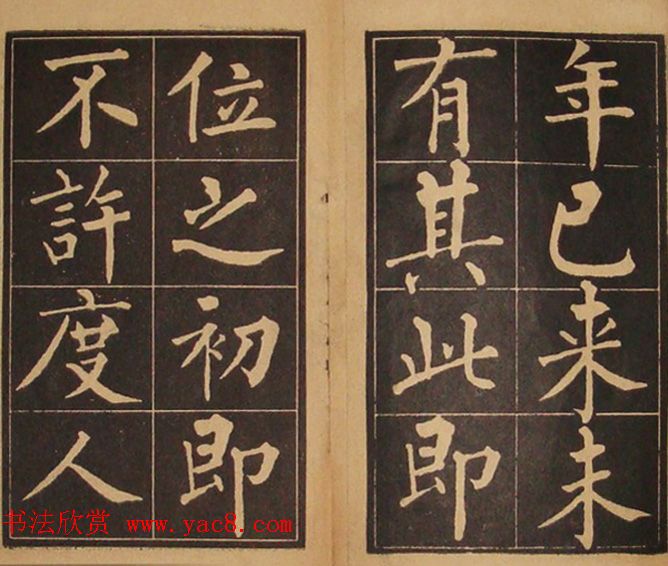 年已来未
有其此即
位之初即
不許度人
书法欣赏 www.yac8.com